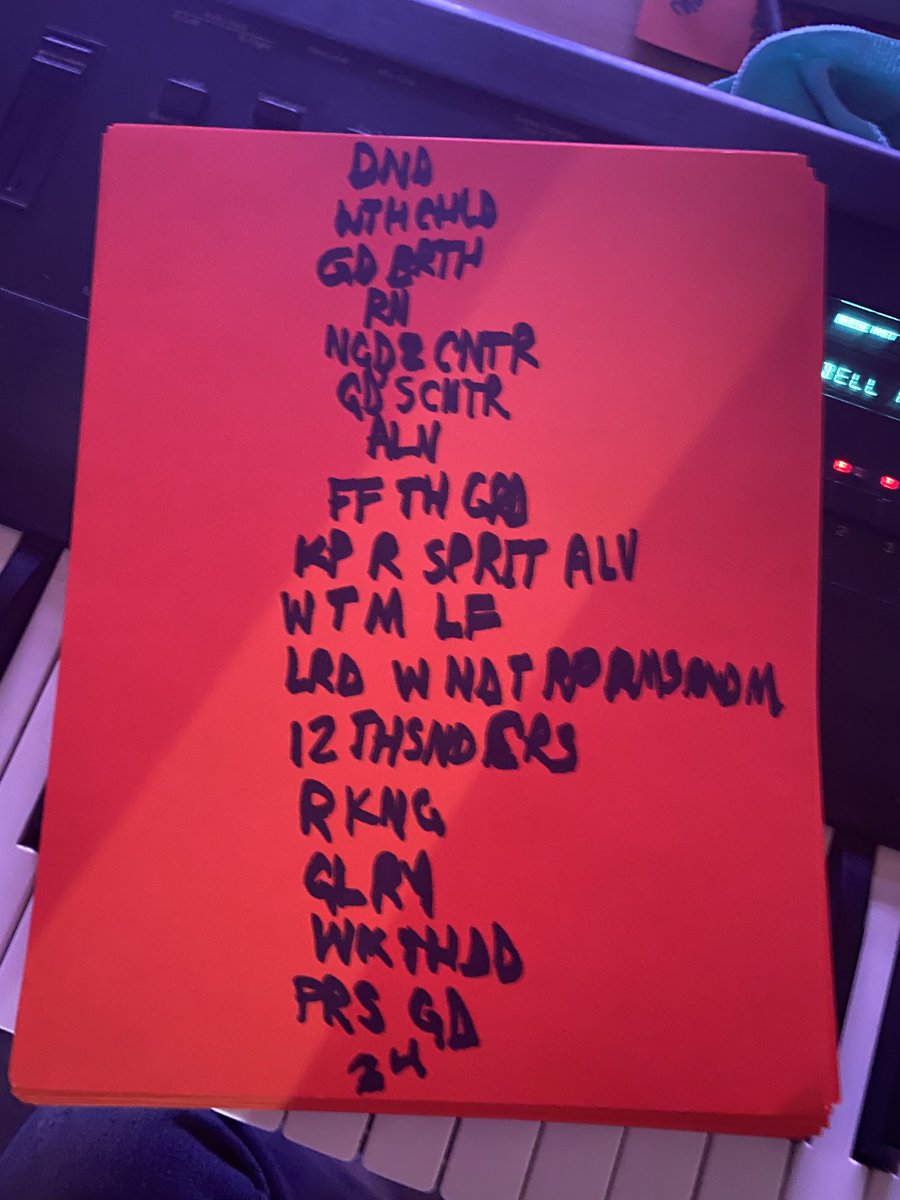 DND
NTHCHLD
GD BRTH
RN
NGD2 CNTR
GD S CNTR
ALN
FF TH GRD
KP R SPRIT ALV
W T M LF
LRD W N D T
12 THSND
R KNG
GLRY
WK TH DD
PRS GD
24
BELL